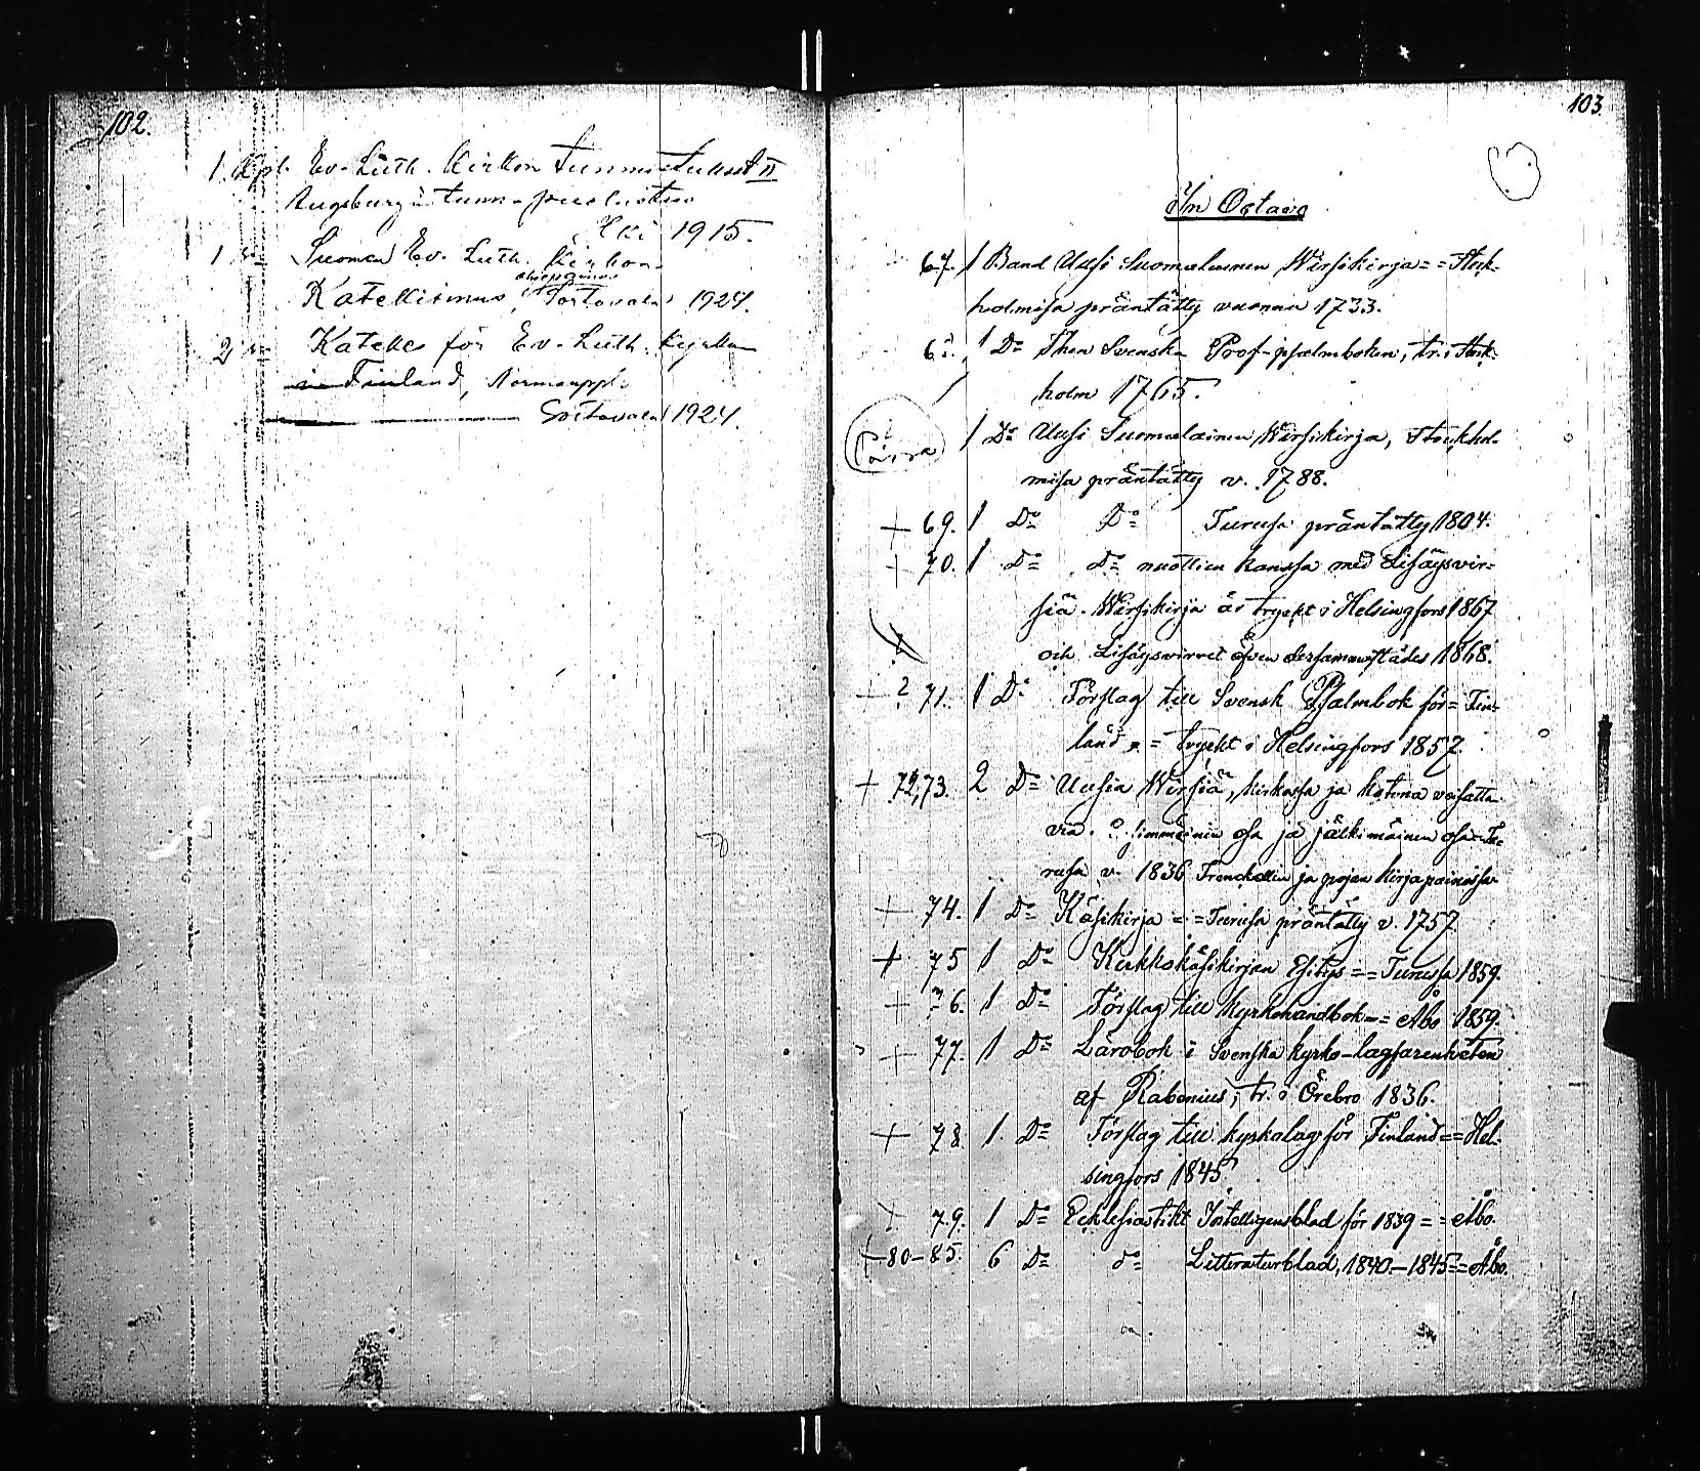 102.
1 Kpl. Ev. Luth. Kirkon Tunnustukset II
Augsburgin tunn.
Hki 1915.
1 Suomen Ev. Luth. Kirkon
Katekismus, Sortavala 1924.
2 Katekes för Ev. Luth. Kyrkan
i Finland, Normaluppl.
Sortavala 1924.
103.
In Octavo
67. 1 Band Uusi Suomalainen Wirsikirja = = Stock-
holmisa präntätty vuonna 1733.
1 Do Then Svenska Prof-psalmboken, tr. i Stock-
holm 1765.
1 Do Uusi Suomalainen Wirsikirja, Stockhol-
misa präntätty v. 1788.
+ 69. 1 Do Do Turusa präntätty 1804.
+ 70. 1 Do Do nuottien kanssa med Lisäysvir-
siä. Wirsikirja är tryckt i Helsingfors 1867
och Lisäysvirret äfven dersammastädes 1868.
+ ? 71. 1 Do Förslag till Svensk Psalmbok för = Fin-
land = = tryckt i Helsingfors 1857.
+ 72,73. 2 Do Uusia Wirsiä, kirkossa ja kotona veisatta-
via. Ensimmäinen osa ja jälkimäinen osa = Tu-
rusa v. 1836 Frenckellin ja pojan kirjapainossa
+ 74. 1 Do Käsikirja = = Turusa präntätty v. 1757.
+ 75 1 Do Kirkkokäsikirjan Esitys = = Turussa 1859.
+ 76. 1 Do Förslag till kyrkohandbok = = Åbo 1859.
+ 77. 1 Do Lärobok i Svenska kyrko-lagfarenheten
af Rabenius, tr. i Örebro 1836.
+ 78. 1 Do Förslag till kyrkolag för Finland = = Hel-
singfors 1845
+ 79. 1 Do Ecklesiastikt Intelligensblad för 1839 = = Åbo.
+ 80-85. 6 Do do Litteraturblad, 1840-1845 = = Åbo.